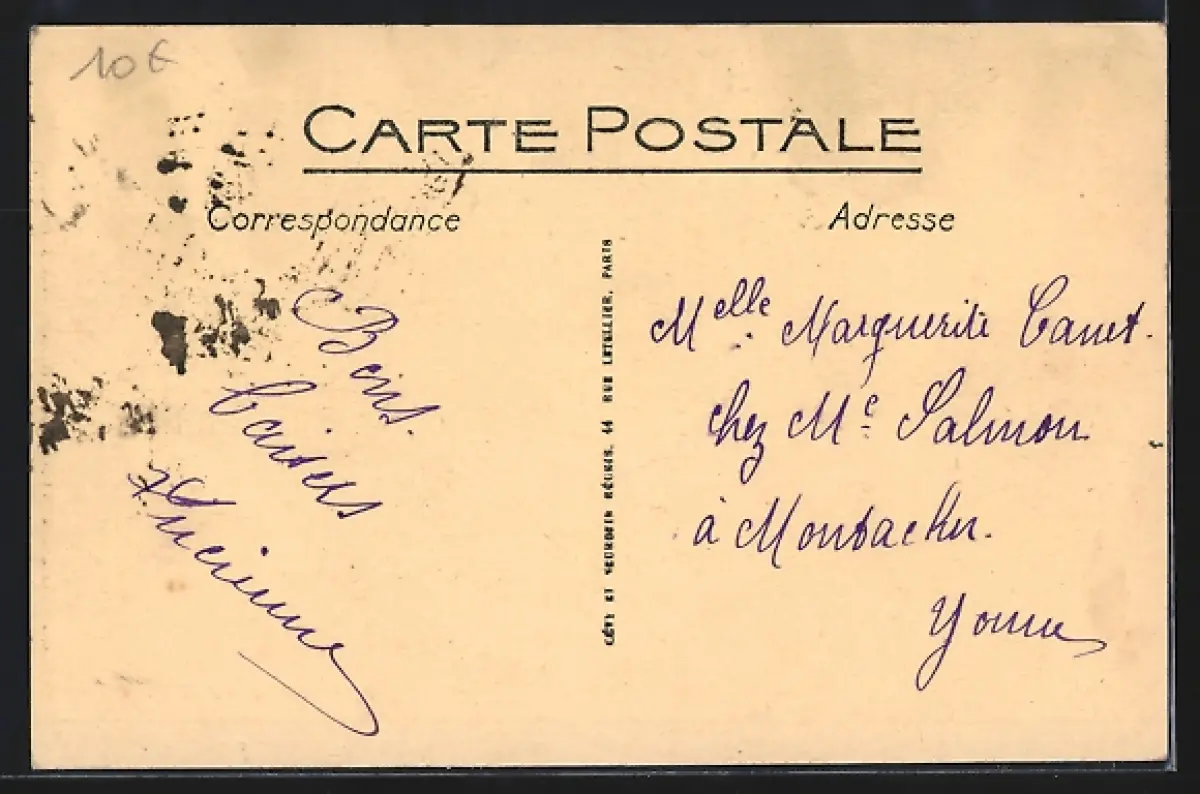 10 €
CARTE POSTALE
Correspondance
Adresse
Bons
baisers
Lucienne
LÉVY ET NEURDEIN RÉUNIS, 44 RUE LETELLIER, PARIS
Melle Marguerite
chez Me Salmon
à Montacher.
Yonne